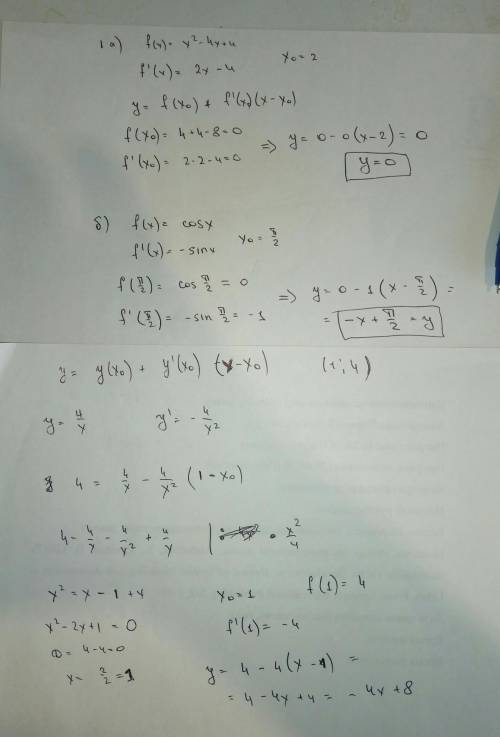 1 а) f(x) = x² - 4x + 4
x₀ = 2
f'(x) = 2x - 4
y = f(x₀) + f'(x₀)(x - x₀)
f(x₀) = 4 + 4 - 8 = 0
f'(x₀) = 2·2 - 4 = 0
=> y = 0 - 0(x - 2) = 0
y = 0
б) f(x) = cosx
f'(x) = - sinx
x₀ = π/2
f(π/2) = cos π/2 = 0
f'(π/2) = - sin π/2 = -1
=> y = 0 - 1(x - π/2) =
= -x + π/2 = y
y = y(x₀) + y'(x₀) (x - x₀) (1; 4)
y = 4/x y' = - 4/x²
4 = 4/x - 4/x² (1 - x₀)
4 = 4/x - 4/x² + 4/x | · x²/4
x² = x - 1 + x
x² - 2x + 1 = 0
D = 4 - 4 = 0
x = 2/2 = 1
x₀ = 1 f(1) = 4
f'(1) = -4
y = 4 - 4(x - 1) =
= 4 - 4x + 4 = - 4x + 8